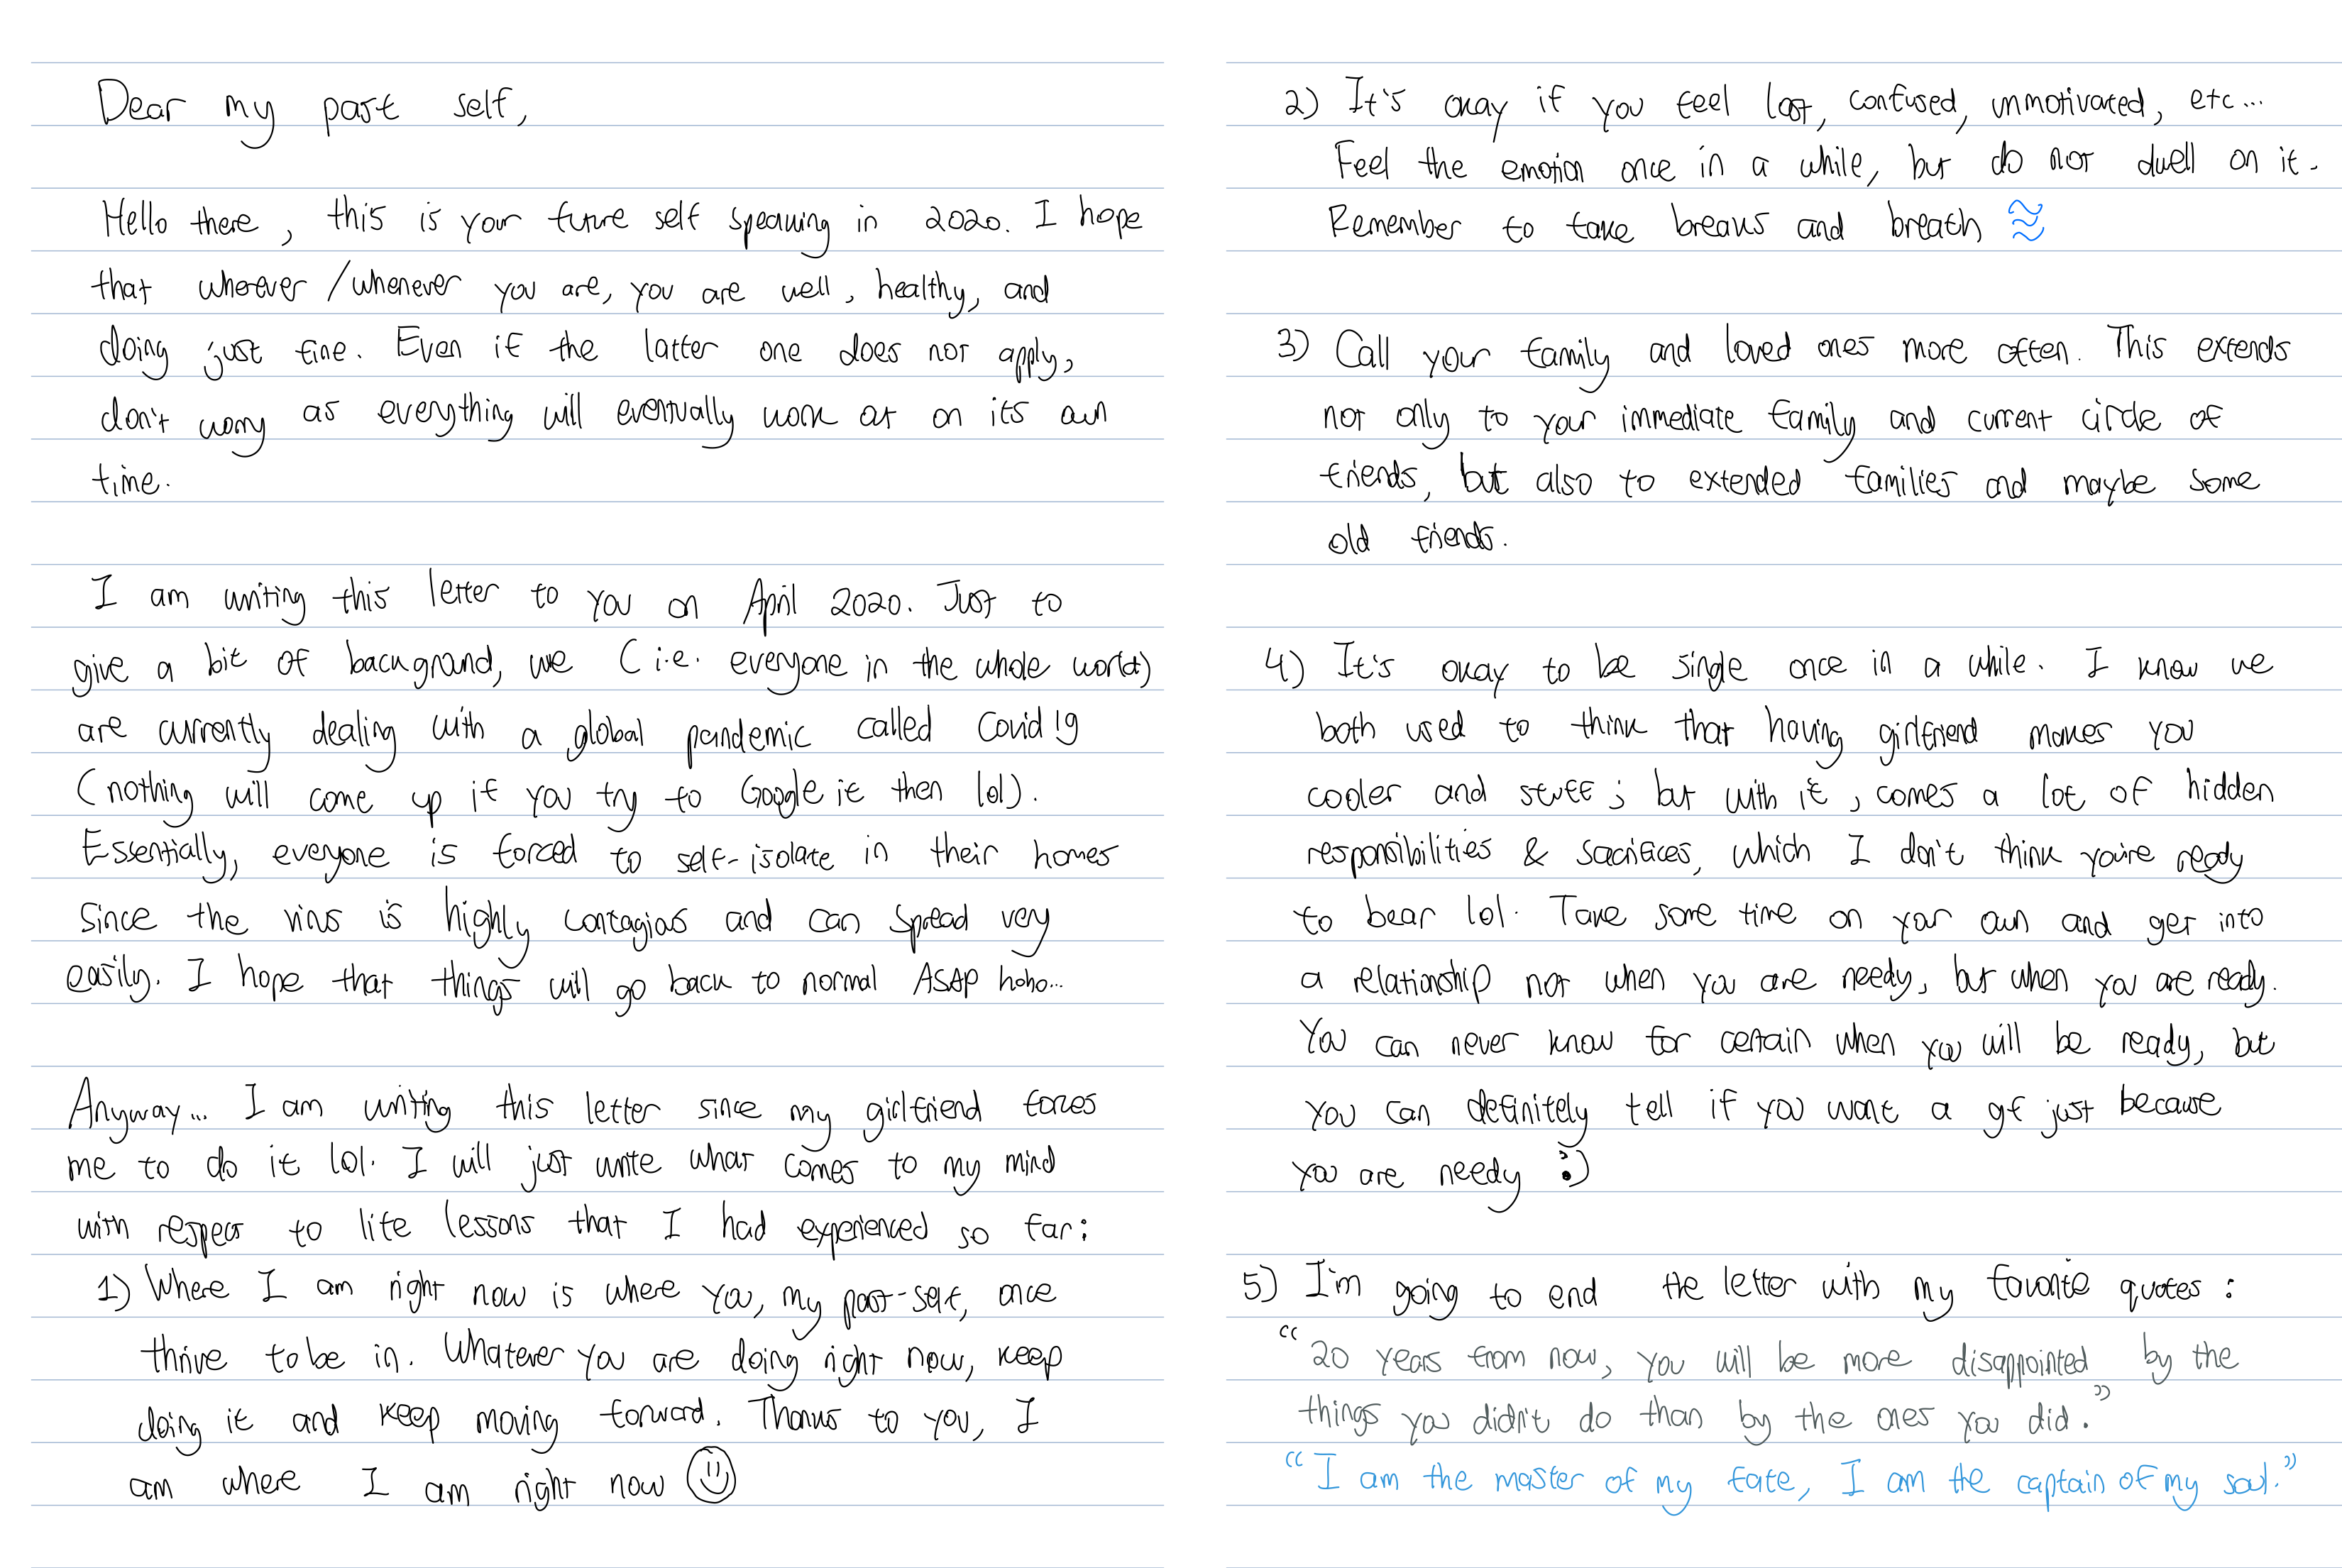 Dear my past self,
Hello there, this is your future self speaking in 2020. I hope
that wherever/whenever you are, you are well, healthy, and
doing just fine. Even if the latter one does not apply,
don't worry as everything will eventually work out on its own
time.
I am writing this letter to you on April 2020. Just to
give a bit of background, we (i.e. everyone in the whole world)
are currently dealing with a global pandemic called Covid 19
(nothing will come up if you try to Google it then lol).
Essentially, everyone is forced to self-isolate in their homes
since the virus is highly contagious and can spread very
easily. I hope that things will go back to normal ASAP hoho...
Anyway... I am writing this letter since my girlfriend forces
me to do it lol. I will just write what comes to my mind
with respect to life lessons that I had experienced so far:
1) Where I am right now is where you, my past-self, once
thrive to be in. Whatever you are doing right now, keep
doing it and keep moving forward. Thanks to you, I
am where I am right now
2) It's okay if you feel lost, confused, unmotivated, etc...
Feel the emotion once in a while, but do not dwell on it.
Remember to take breaks and breath
3) Call your family and loved ones more often. This extends
not only to your immediate family and current circle of
friends, but also to extended families and maybe some
old friends.
4) It's okay to be single once in a while. I know we
both used to think that having girlfriend makes you
cooler and stuff; but with it, comes a lot of hidden
responsibilities & sacrifices, which I don't think you're ready
to bear lol. Take some time on your own and get into
a relationship not when you are needy, but when you are ready.
You can never know for certain when you will be ready, but
you can definitely tell if you want a gf just because
you are needy :)
5) I'm going to end the letter with my favorite quotes:
"20 years from now, you will be more disappointed by the
things you didn't do than by the ones you did."
"I am the master of my fate, I am the captain of my soul."